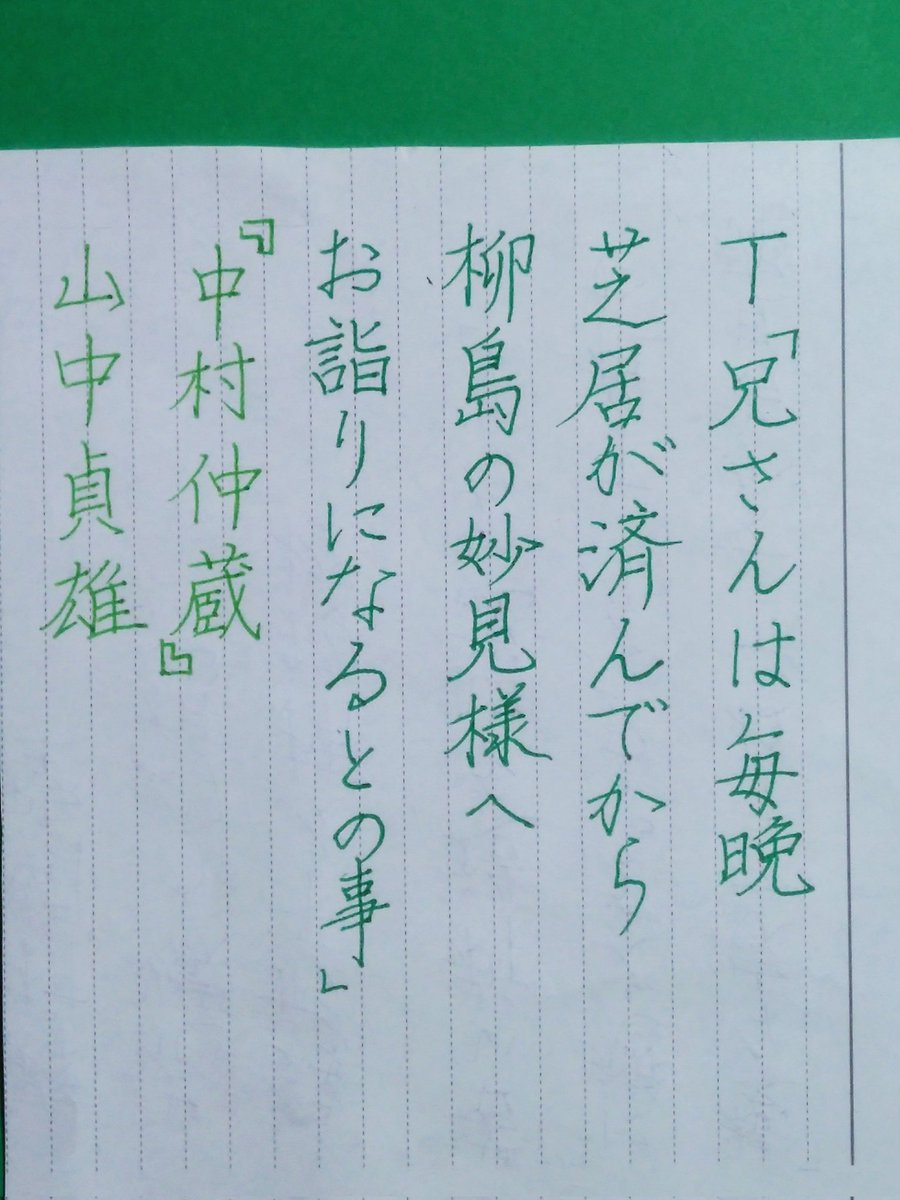 T「兄さんは毎晩
芝居が済んでから
柳島の妙見様へ
お詣りになるとの事」
『中村仲蔵』
山中貞雄